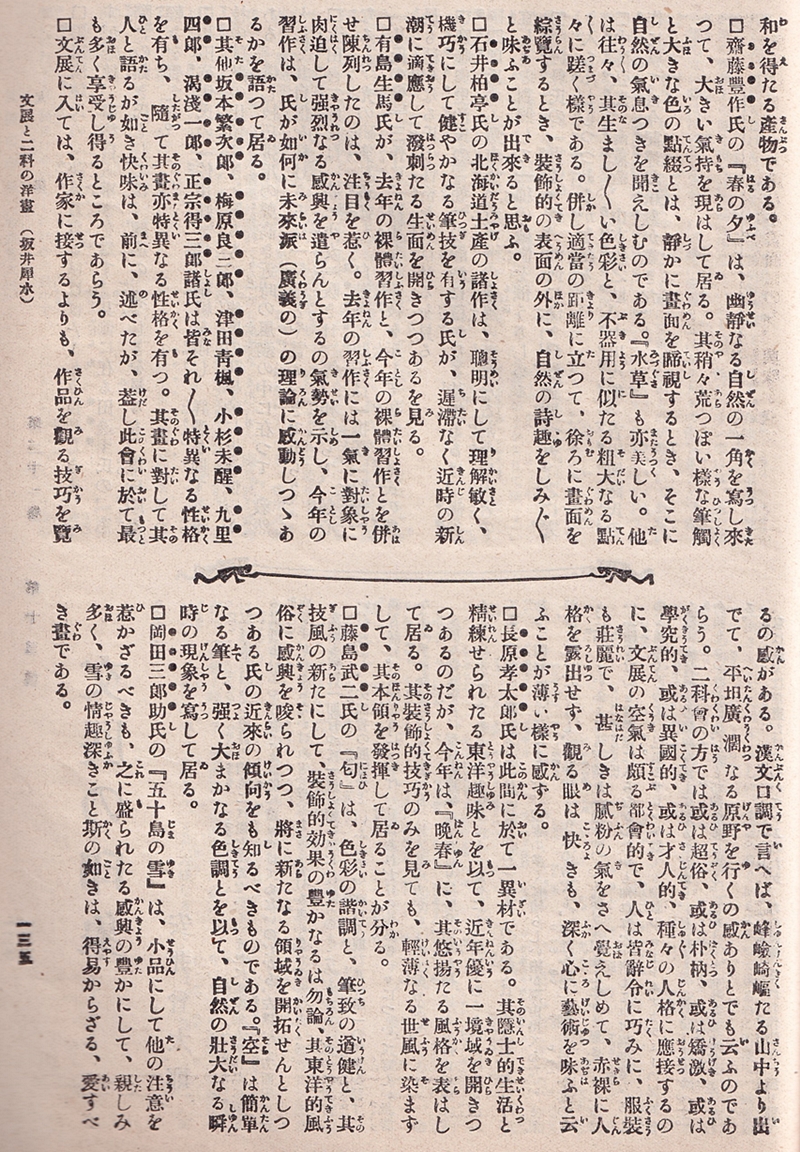 和を得たる產物である。
□齋藤豐作氏の『春の夕』は、幽靜なる自然の一角を寫し來
つて、大きい氣持を現はして居る。其稍々荒つぽい樣な筆觸
と大きな色の點綴とは、靜かに畫面を睇視するとき、そこに
自然の氣息つきを聞えしむのである。『水草』も亦美しい。他
は往々、其生まし〱い色彩と、不器用に似たる粗大なる點
々に躓く樣である。併し適當の距離に立つて、徐ろに畫面を
綜覽するとき、裝飾的の表面の外に、自然の詩趣をしみ〲
と味ふことが出來ると思ふ。
□石井柏亭氏の北海道土產の諸作は、聰明にして理解敏く、
機巧にして健やかなる筆技を有する氏が、遲滯なく近時の新
潮に適應して潑刺たる生面を開きつつあるを見る。
□有島生馬氏が、去年の裸體習作と、今年の裸體習作とを併
せ陳列したのは、注目を惹く。去年の習作には一氣に對象に
肉迫して强烈なる感興を遣らんとするの氣勢を示し、今年の
習作は、氏が如何に未來派（廣義の）の理論に感動しつゝあ
るかを語つて居る。
□其他坂本繁次郎、梅原良三郎、津田靑楓、小杉未醒、九里
四郎、湯淺一郎、正宗得三郎諸氏は皆それ〲特異なる性格
を有ち、隨つて其畫亦特異なる性格を有つ。其畫に對して其
人と語るが如き快味は、前に、述べたが、蓋し此會に於て最
も多く享受し得るところであらう。
□文展に入ては、作家に接するよりも、作品を觀る技巧を覽
るの感がある。漢文口調で言へば、峰嶮崎嶇たる山中より出
でて、平坦廣濶なる原野を行くの感ありとでも云ふのであ
らう。二科會の方では或は超俗、或は朴柄、或は矯激、或は
學究的、或は異國的、或は才人的、種々の人格に應接するの
に、文展の空氣は頗る都會的で、人は皆辭令に巧みに、服裝
も莊麗で、甚しきは膩粉の氣をさへ覺えしめて、赤裸に人
格を露出せず、觀る眼は快きも、深く心に藝術を味ふと云
ふことが薄い樣に感ずる。
□長原孝太郎氏は此間に於て一異材である。其隱士的生活と
精練せられたる東洋趣味とを以て、近年優に一境域を開きつ
つあるのだが、今年は、『晚春』に、其悠揚たる風格を表はし
て居る。其裝飾的技巧のみを見ても、輕薄なる世風に染まず
して、其本領を發揮して居ることが分る。
□藤島武二氏の『匂』は、色彩の諧調と、筆致の遒健と、其
技風の新たにして、裝飾的効果の豐かなるは勿論、其東洋的風
俗に感興を唆られつつ、將に新たなる領域を開拓せんとしつ
つある氏の近來の傾向をも知るべきものである。『空』は簡單
なる筆と、强く大まかなる色調とを以て、自然の壯大なる瞬
時の現象を寫して居る。
□岡田三郎助氏の『五十島の雪』は、小品にして他の注意を
惹かざるべきも、之に盛られたる感興の豐かにして、親しみ
多く、雪の情趣深きこと斯の如きは、得易からざる、愛すべ
き畫である。
文展と二科の洋畫（坂井犀水）
一三五